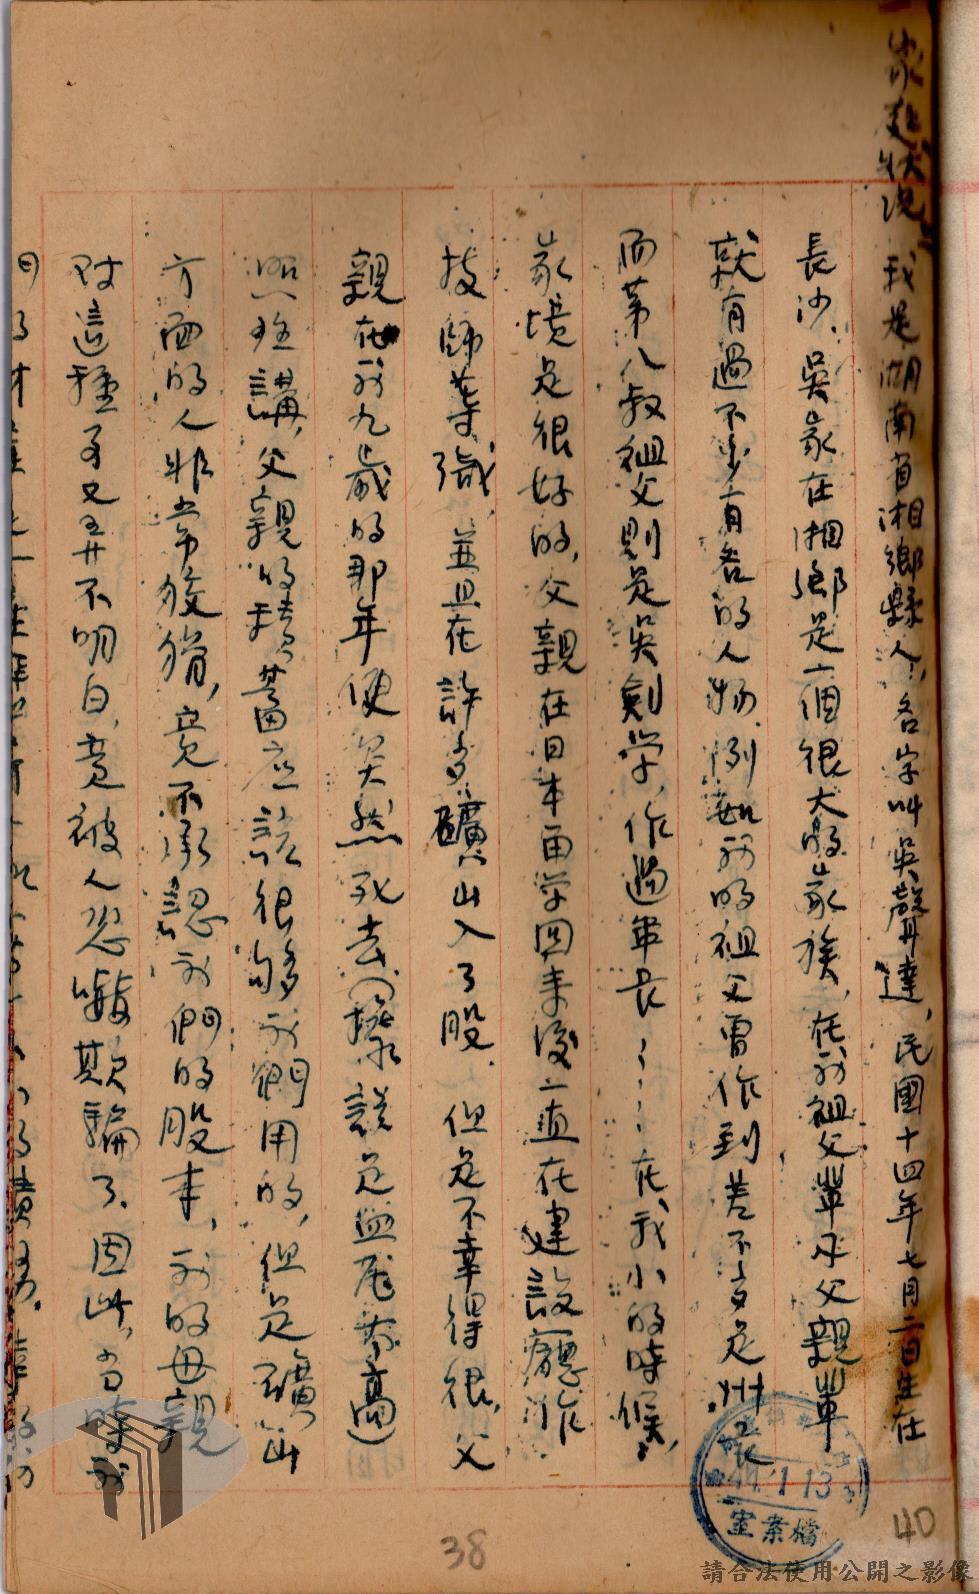 家庭狀況：我是湖南省湘鄉縣人，名字叫吳聲達，民國十四年七月二日生在
長沙，吳家在湘鄉是一個很大的家族，在我祖父輩及父親輩
就有過不少有名的人物，例如我的祖父曾作到差不多是州長，
而第八叔祖父則是吳劍学，作過軍長……在我小的時候，
家境是很好的，父親在日本留学回来後一直在建設廳作
技師等職，並且在許多礦山入了股，但是不幸得很，父
親在我九歲的那年便突然死去（據說是血压太高）
照理講，父親的積蓄应該很够我們用的，但是礦山
方面的人非常狡猾，竟不承認我們的股本，我的母親
对這種事又弄不明白，竟被人恐嚇欺騙了，因此，当時我
38
40
1 13
檔案室
請合法使用公開之影像